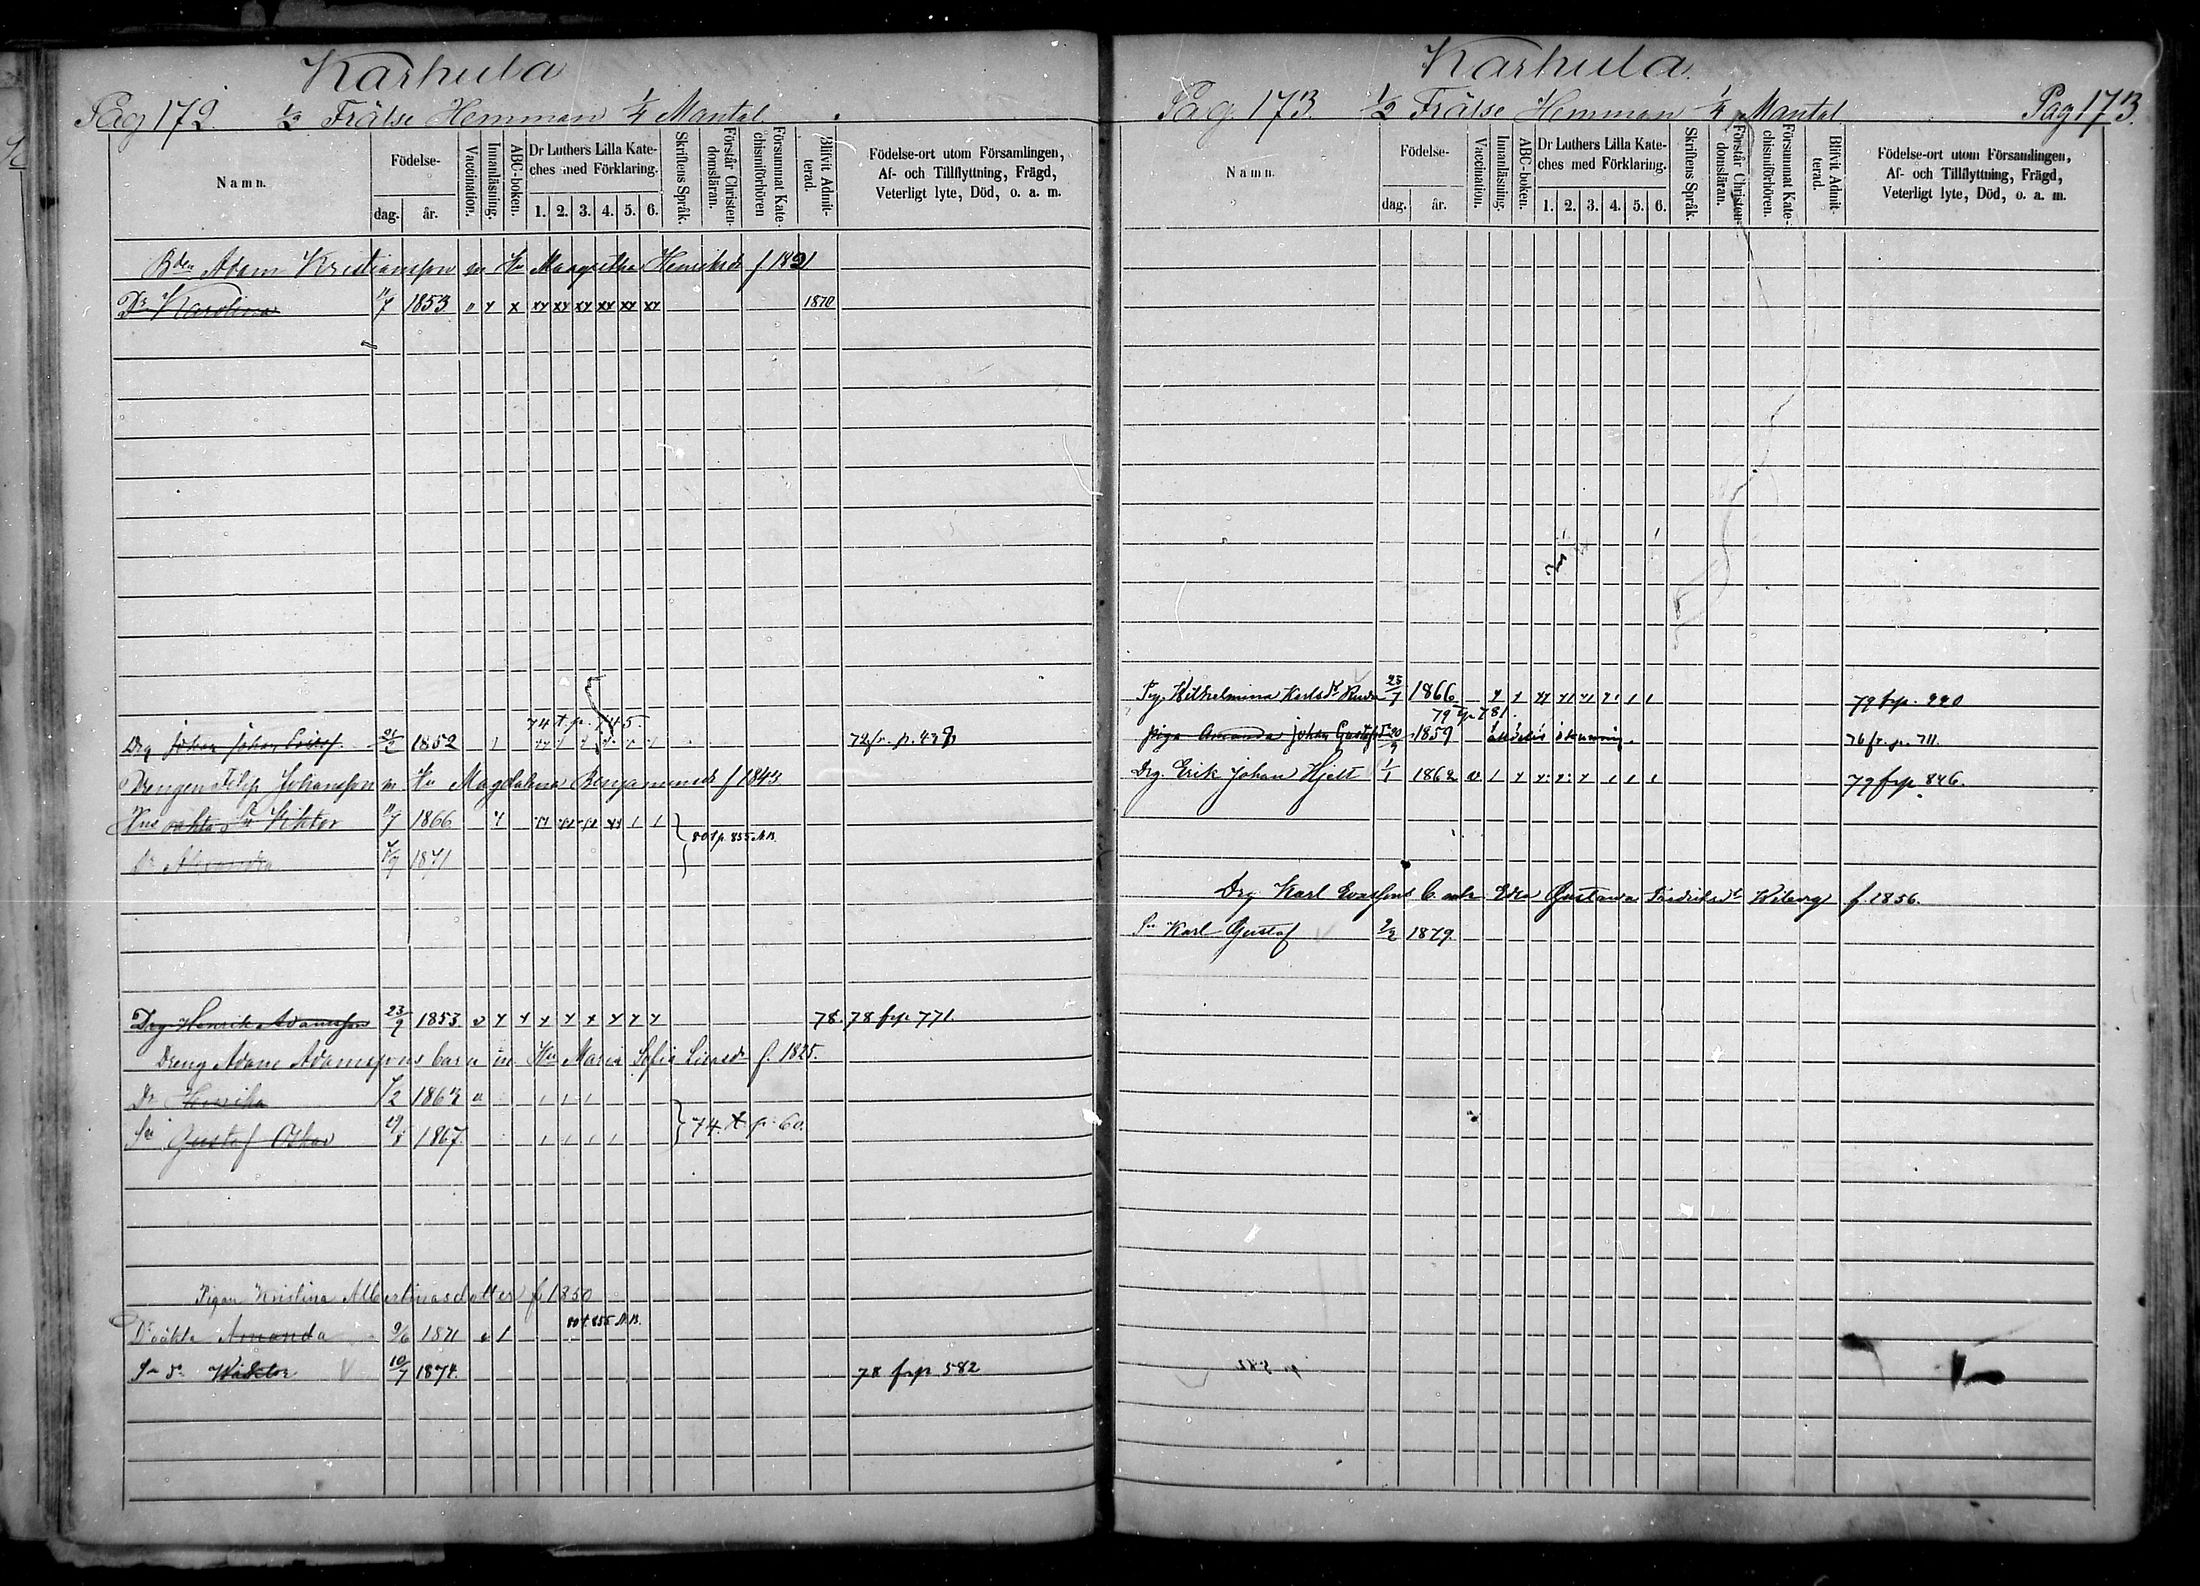 Karhula
Pag 172. 1/2 Frälse Hemman 1/4 Mantal
Namn.
Födelse-
dag. år.
Vaccination.
Innanläsning.
ABC-boken.
Dr Luthers Lilla Kate-
ches med Förklaring.
1. 2. 3. 4. 5. 6.
Skriftens Språk.
Förstår Christen-
domsläran.
Försummat Kate-
chismiförhören
Blifvit Admit-
terad.
Födelse-ort utom Församlingen,
Af- och Tillflyttning, Frägd,
Veterligt lyte, Död, o. a. m.
Adam Kristiansson m Hu Margretha Henriksdr f 1821
Dr Karolina 11/7 1853 1870
74 t. p. 745.
Drg Johan Johan 21/2 1852 72 fr. p. 438
Drengen Filip Johansson m Hu Magdalena Benjaminsdr f 1843
Sn Viktor 11/7 1866
80 t p. 855 N.B.
Dr Alexandra 1871
Drg Henrik Adamsson 23/9 1853 78. 78 frp 771.
Dreng Adam Adamssons barn m. Hu Maria Sofia f. 1825.
Dr Henrika 1/2 1863
74. t. p. 60.
Sn Gustaf Oskar 1867
Pigan Kristina Albertinasdotter f 1850
80 t. 855 N.B.
Dr oäkta Amanda 9/6 1871
Sn dn Viktor 10/7 1874. 78 frp 582
Karhula.
Pag. 173. 1/2 Frälse Hemman 1/4 Mantal Pag 173.
Namn.
Födelse-
dag. år.
Vaccination.
Innanläsning.
ABC-boken.
Dr Luthers Lilla Kate-
ches med Förklaring.
1. 2. 3. 4. 5. 6.
Skriftens Språk.
Förstår Christen-
domsläran.
Försummat Kate-
chismiförhören.
Blifvit Admit-
terad.
Födelse-ort utom Församlingen,
Af- och Tillflyttning, Frägd,
Veterligt lyte, Död, o. a. m.
Pig. Wilhelmina Karlsdr 1866 79 frp. 220
79 t p 781.
piga Amanda Johan Gustafsdr 1859 76 fr. p. 711.
Drg. Erik Johan Hjelt 1/1 1862 79 frp 846.
Drg Karl Gustava Fredriksdr f. 1856.
Sn Karl Gustaf 2/2 1879.